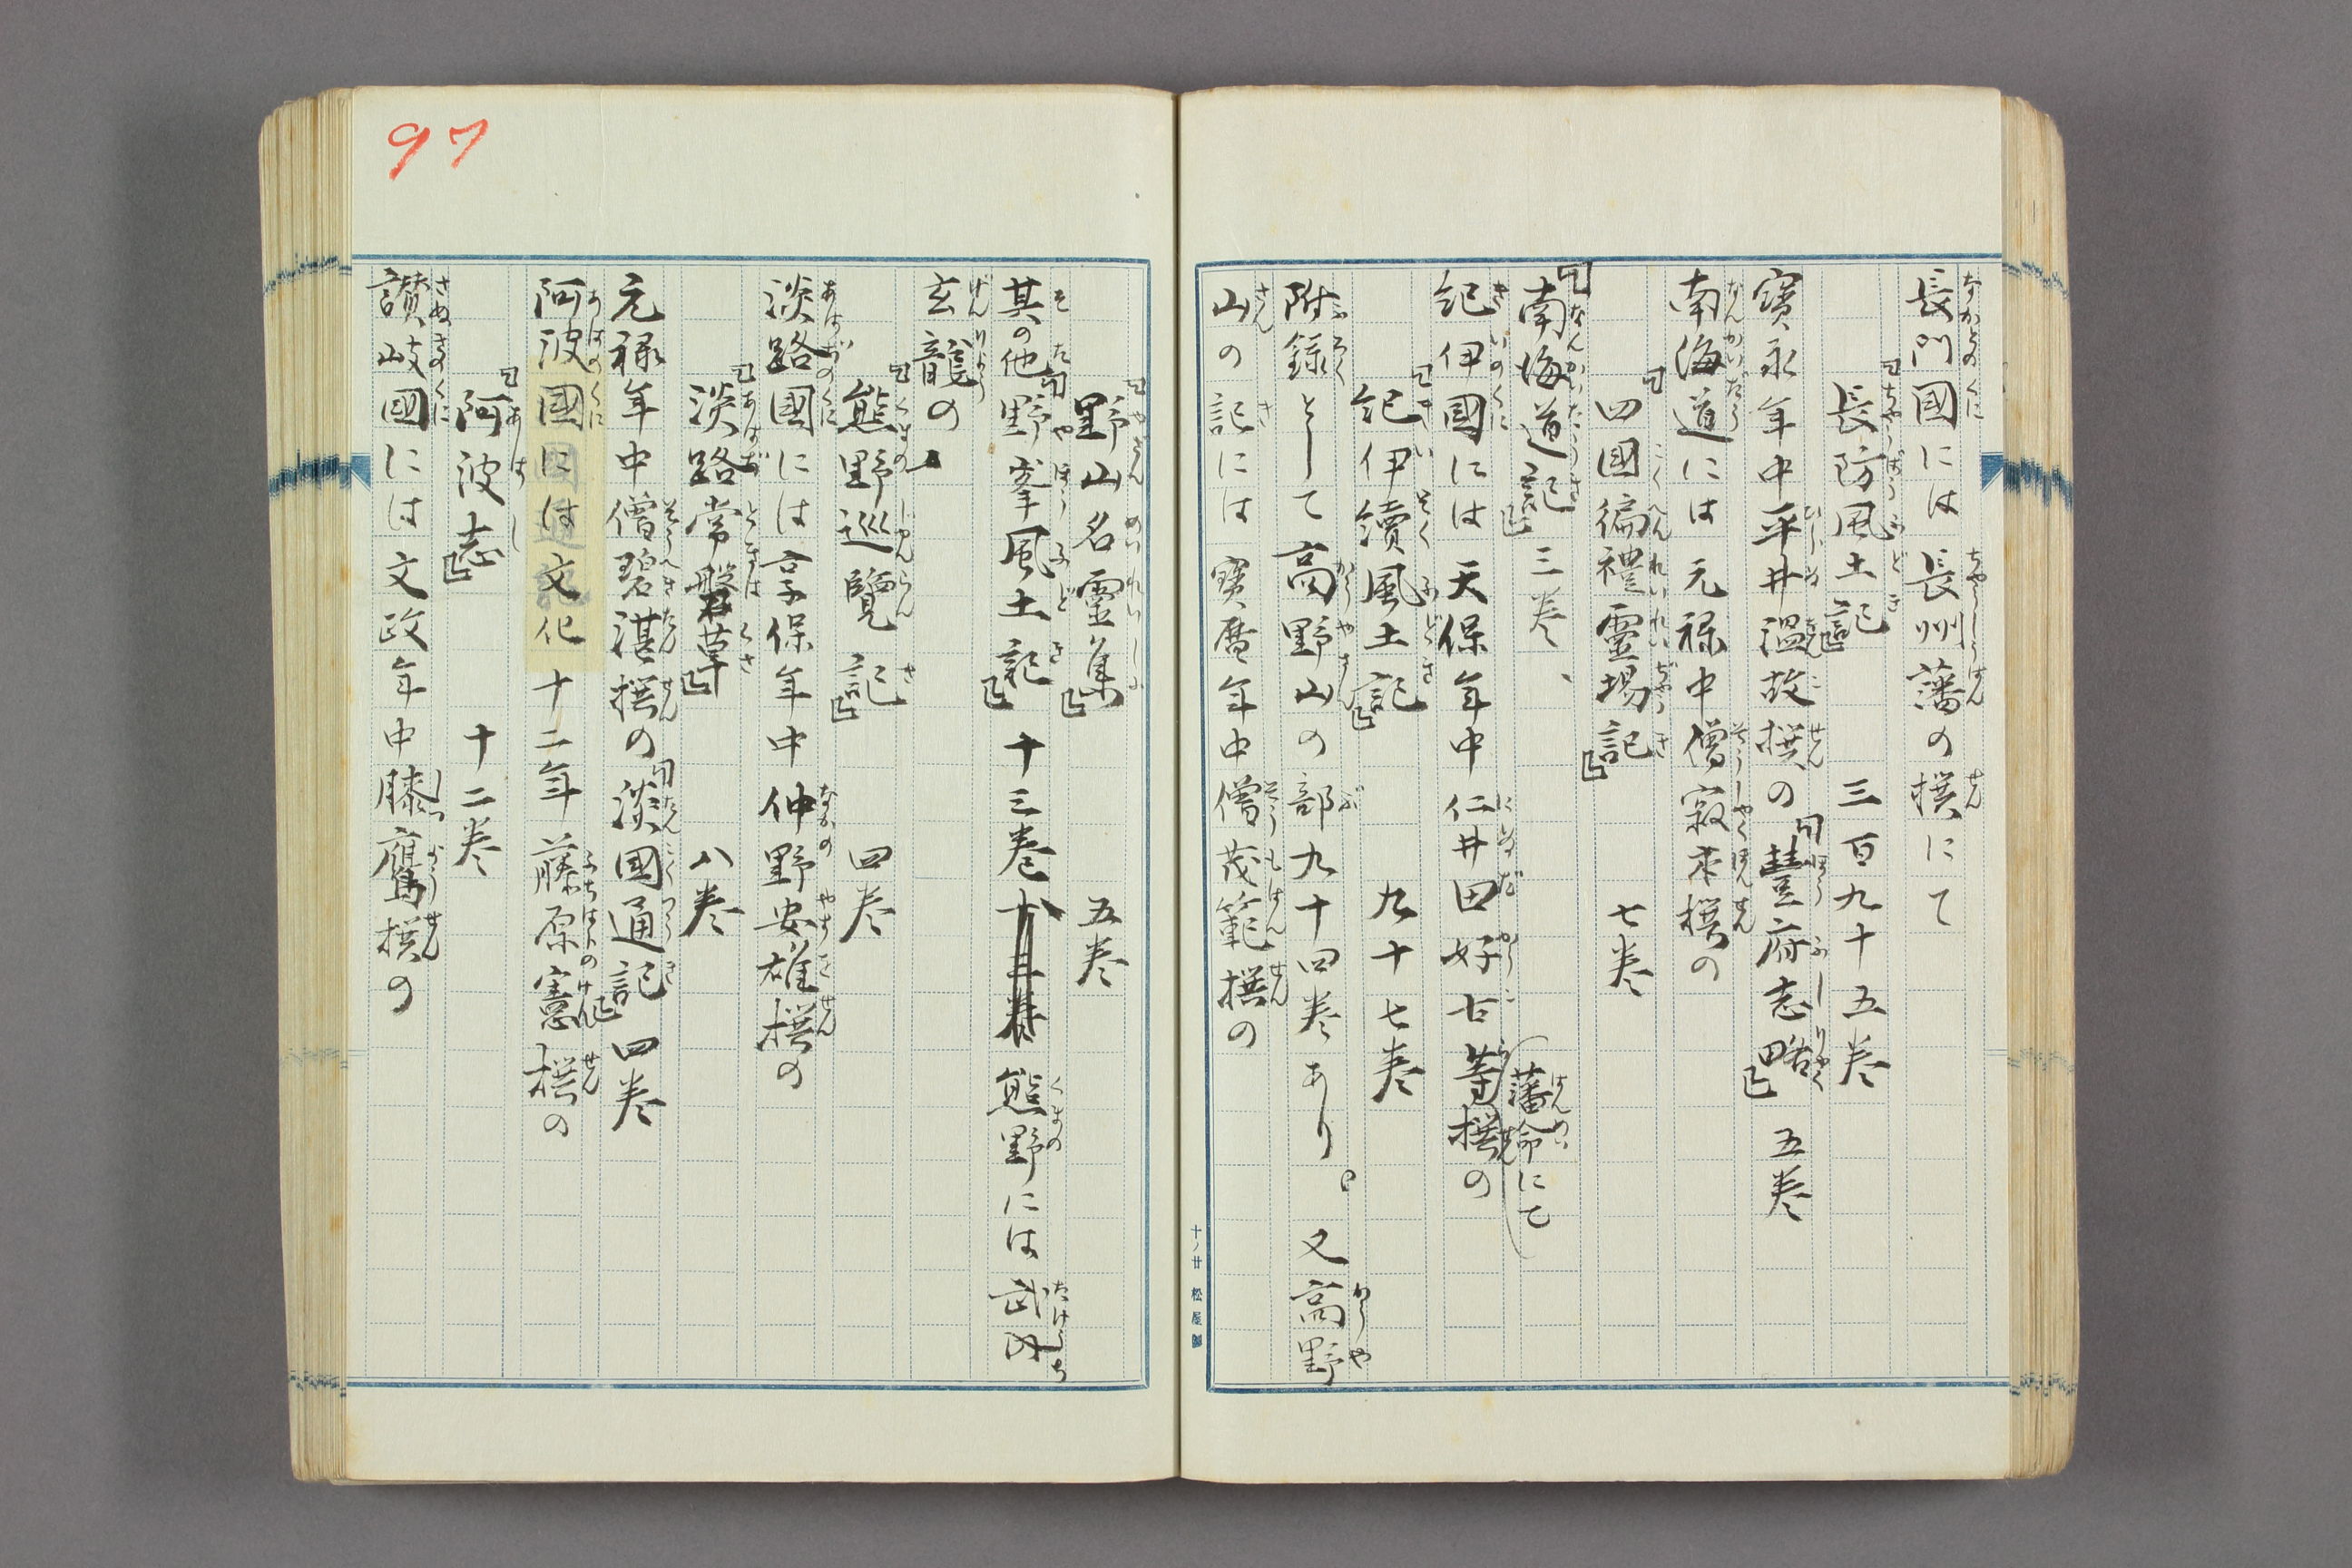 長門國には長州藩の撰にて
『長防風土記』 三百九十五巻
寳永年中平井温故撰の『豊府志略』 五巻
南海道には元禄中僧寂本撰の
『四國徧禮霊場記』 七巻
『南海道記』 三巻、
紀伊國には天保年中仁井田好古等(藩命にて)撰の
『紀伊續風土記』 九十七巻
附録として高野山の部九十四巻あり。又高野
山の記には寳暦年中僧茂範撰の
『野山名霊集』 五巻
其の他『野峯風土記』十三巻 熊野には武内
玄龍の
『熊野巡覽記』 四巻
淡路國には享保年中仲野安雄撰の
『淡路常磐草』 八巻
元禄年中僧碧湛撰の『淡國通記』四巻
阿波國には文化十二年藤原憲撰の
『阿波志』 十二巻
讃岐國には文政年中膝鷹撰の
97
十ノ廿 松屋製